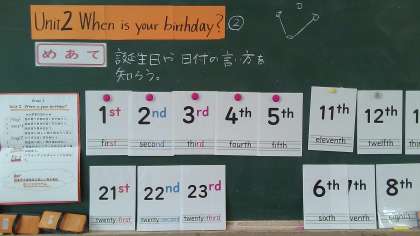 Unit2 When is your birthday? ②
めあて
誕生日や日付の言い方を
知ろう。
1st
first
2nd
second
3rd
third
4th
fourth
5th
fifth
11th
eleventh
12th
twelfth
21st
twenty-first
22nd
twenty-second
23rd
twenty-third
6th
sixth
7th
venth
8th
eighth